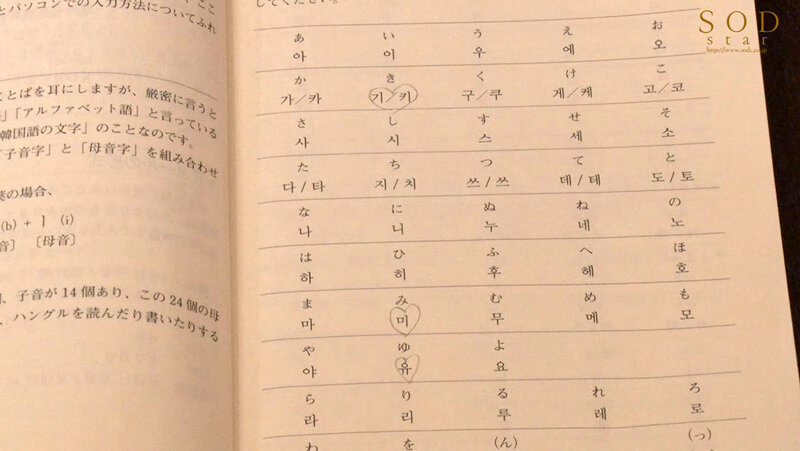 ここ
とパソコンでの入力方法についてふれ
ことばを耳にしますが、厳密に言うと
」「アルファベット語」と言っている
韓国語の文字」のことなのです。
「子音字」と「母音字」を組み合わせ
の場合、
(b) + ㅣ (i)
音〕 〔母音〕
、子音が14個あり、この24個の母
、ハングルを読んだり書いたりする
してください。
あ い う え お
아 이 우 에 오
か き く け こ
가/카 기/키 구/쿠 게/케 고/코
さ し す せ そ
사 시 스 세 소
た ち つ て と
다/타 지/치 쓰/쓰 데/테 도/토
な に ぬ ね の
나 니 누 네 노
は ひ ふ へ ほ
하 히 후 헤 호
ま み む め も
마 미 무 메 모
や ゆ よ
야 유 요
ら り る れ ろ
라 리 루 레 로
わ を (ん) (っ)
SOD
star
https://www.sodc.co.jp